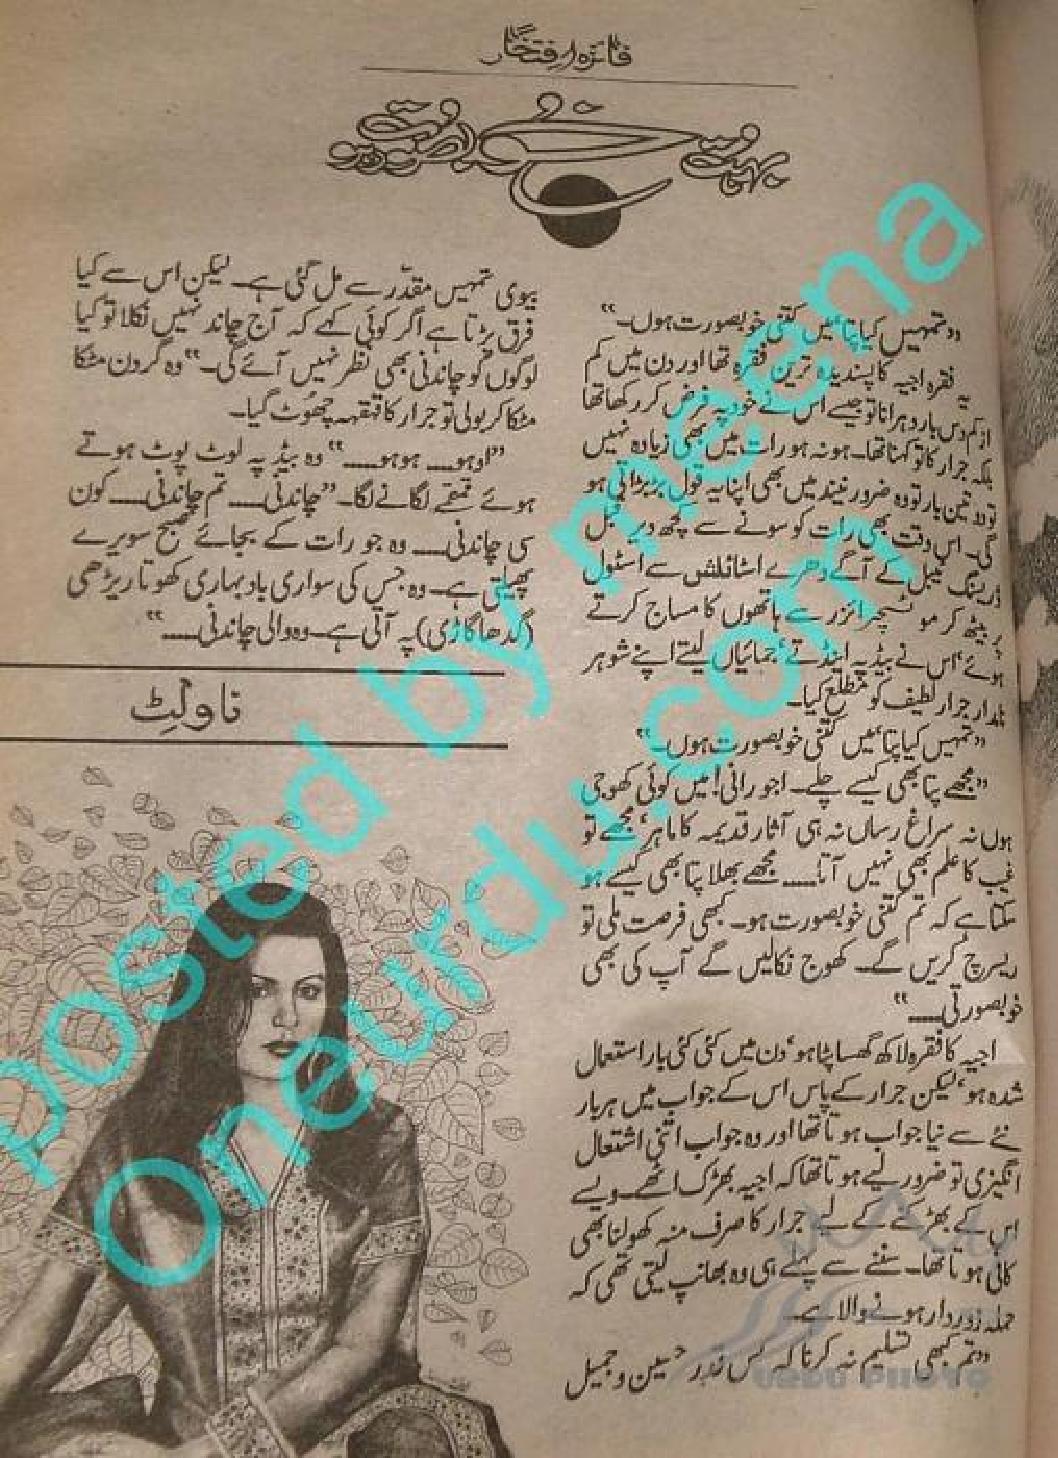 فائزہ افتخار
بہت خوبصورت ہو
”تمہیں کیا پتا، میں کتنی خوبصورت ہوں۔“
یہ فقرہ اجیہ کا پسندیدہ ترین فقرہ تھا اور دن میں کم
از کم دس بار دہرانا تو جیسے اس نے خود پہ فرض کر رکھا تھا
بلکہ جرار کا تو کہنا تھا۔ ہو نہ ہو رات میں بھی زیادہ نہیں
تو دو تین بار تو وہ ضرور نیند میں بھی اپنا یہ قول بڑبڑاتی ہو
گی۔ اس وقت بھی رات کو سونے سے کچھ دیر قبل
ڈریسنگ ٹیبل کے آگے دھرے اسٹائلش سے اسٹول
پر بیٹھ کر موئسچرائزر سے ہاتھوں کا مساج کرتے
ہوئے، اس نے بیڈ پہ اینڈتے، جمائیاں لیتے اپنے شوہر
نامدار جرار لطیف کو مطلع کیا۔
”تمہیں کیا پتا، میں کتنی خوبصورت ہوں۔“
”مجھے پتا بھی کیسے چلے۔ اجو رانی! میں کوئی کھوجی
ہوں نہ سراغ رساں نہ ہی آثار قدیمہ کا ماہر، مجھے تو
غیب کا علم بھی نہیں آتا۔۔۔۔ مجھے بھلا پتا بھی کیسے ہو
سکتا ہے کہ تم کتنی خوبصورت ہو۔ کبھی فرصت ملی تو
ریسرچ کریں گے۔ کھوج نکالیں گے آپ کی بھی
خوبصورتی۔۔۔۔“
اجیہ کا فقرہ لاکھ گھسا پٹا ہو، دن میں کئی کئی بار استعمال
شدہ ہو، لیکن جرار کے پاس اس کے جواب میں ہر بار
نئے سے نیا جواب ہوتا تھا اور وہ جواب اتنی اشتعال
انگیزی تو ضرور لیے ہوتا تھا کہ اجیہ بھڑک اٹھے۔ ویسے
اس کے بھڑکنے کے لیے جرار کا صرف منہ کھولنا بھی
کافی ہوتا تھا۔ سننے سے پہلے ہی وہ بھانپ لیتی تھی کہ
حملہ زوردار ہونے والا ہے۔
”تم کبھی تسلیم نہ کرنا کہ کس قدر حسین و جمیل
بیوی تمہیں مقدر سے مل گئی ہے۔ لیکن اس سے کیا
فرق پڑتا ہے اگر کوئی کہے کہ آج چاند نہیں نکلا تو کیا
لوگوں کو چاندنی بھی نظر نہیں آئے گی۔“ وہ گردن مٹکا
مٹکا کر بولی تو جرار کا قہقہہ چھوٹ گیا۔
”اوہو۔۔۔ ہو ہو۔۔۔“ وہ بیڈ پہ لوٹ پوٹ ہوتے
ہوئے قہقہے لگانے لگا۔ ”چاندنی۔۔۔ تم چاندنی۔۔۔ کون
سی چاندنی۔۔۔ وہ جو رات کے بجائے صبح سویرے
پھیلتی ہے۔ وہ جس کی سواری باد بہاری کھوتا ریڑھی
(گدھا گاڑی) پہ آتی ہے۔ وہ والی چاندنی۔۔۔“
ناولٹ
posted by meena
Oneurdu.com
URDU PHOTO